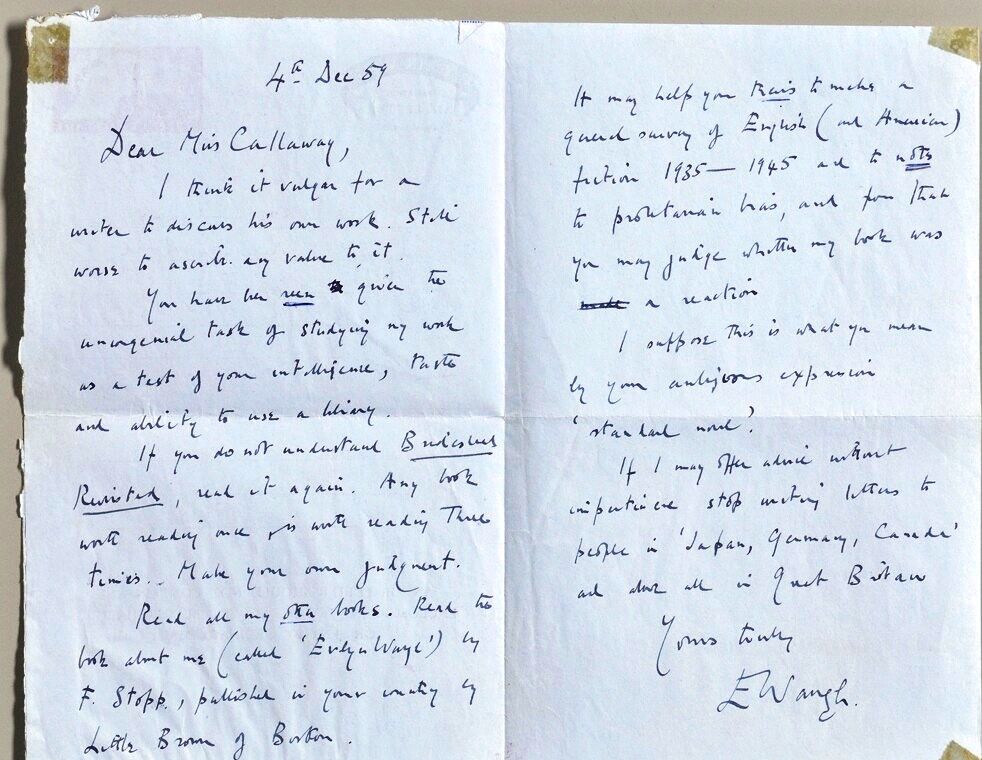 4th Dec 59
Dear Miss Callaway,
I think it vulgar for a
writer to discuss his own work. Still
worse to ascribe any value to it.
You have been given the
uncongenial task of studying my work
as a test of your intelligence, taste
and ability to use a library.
If you do not understand Brideshead
Revisited, read it again. Any book
worth reading once is worth reading three
times. Make your own judgment.
Read all my other books. Read the
book about me (called 'Evelyn Waugh') by
F. Stopp, published in your country by
Little Brown of Boston.
It may help you to make a
general survey of English (and American)
fiction 1935—1945 and to note
its proletarian bias, and from that
you may judge whether my book was
a reaction
I suppose this is what you mean
by your ambiguous expression
'standard novel'?
If I may offer advice without
impertinence stop writing letters to
people in 'Japan, Germany, Canada'
and above all in Great Britain
Yours truly
E Waugh.